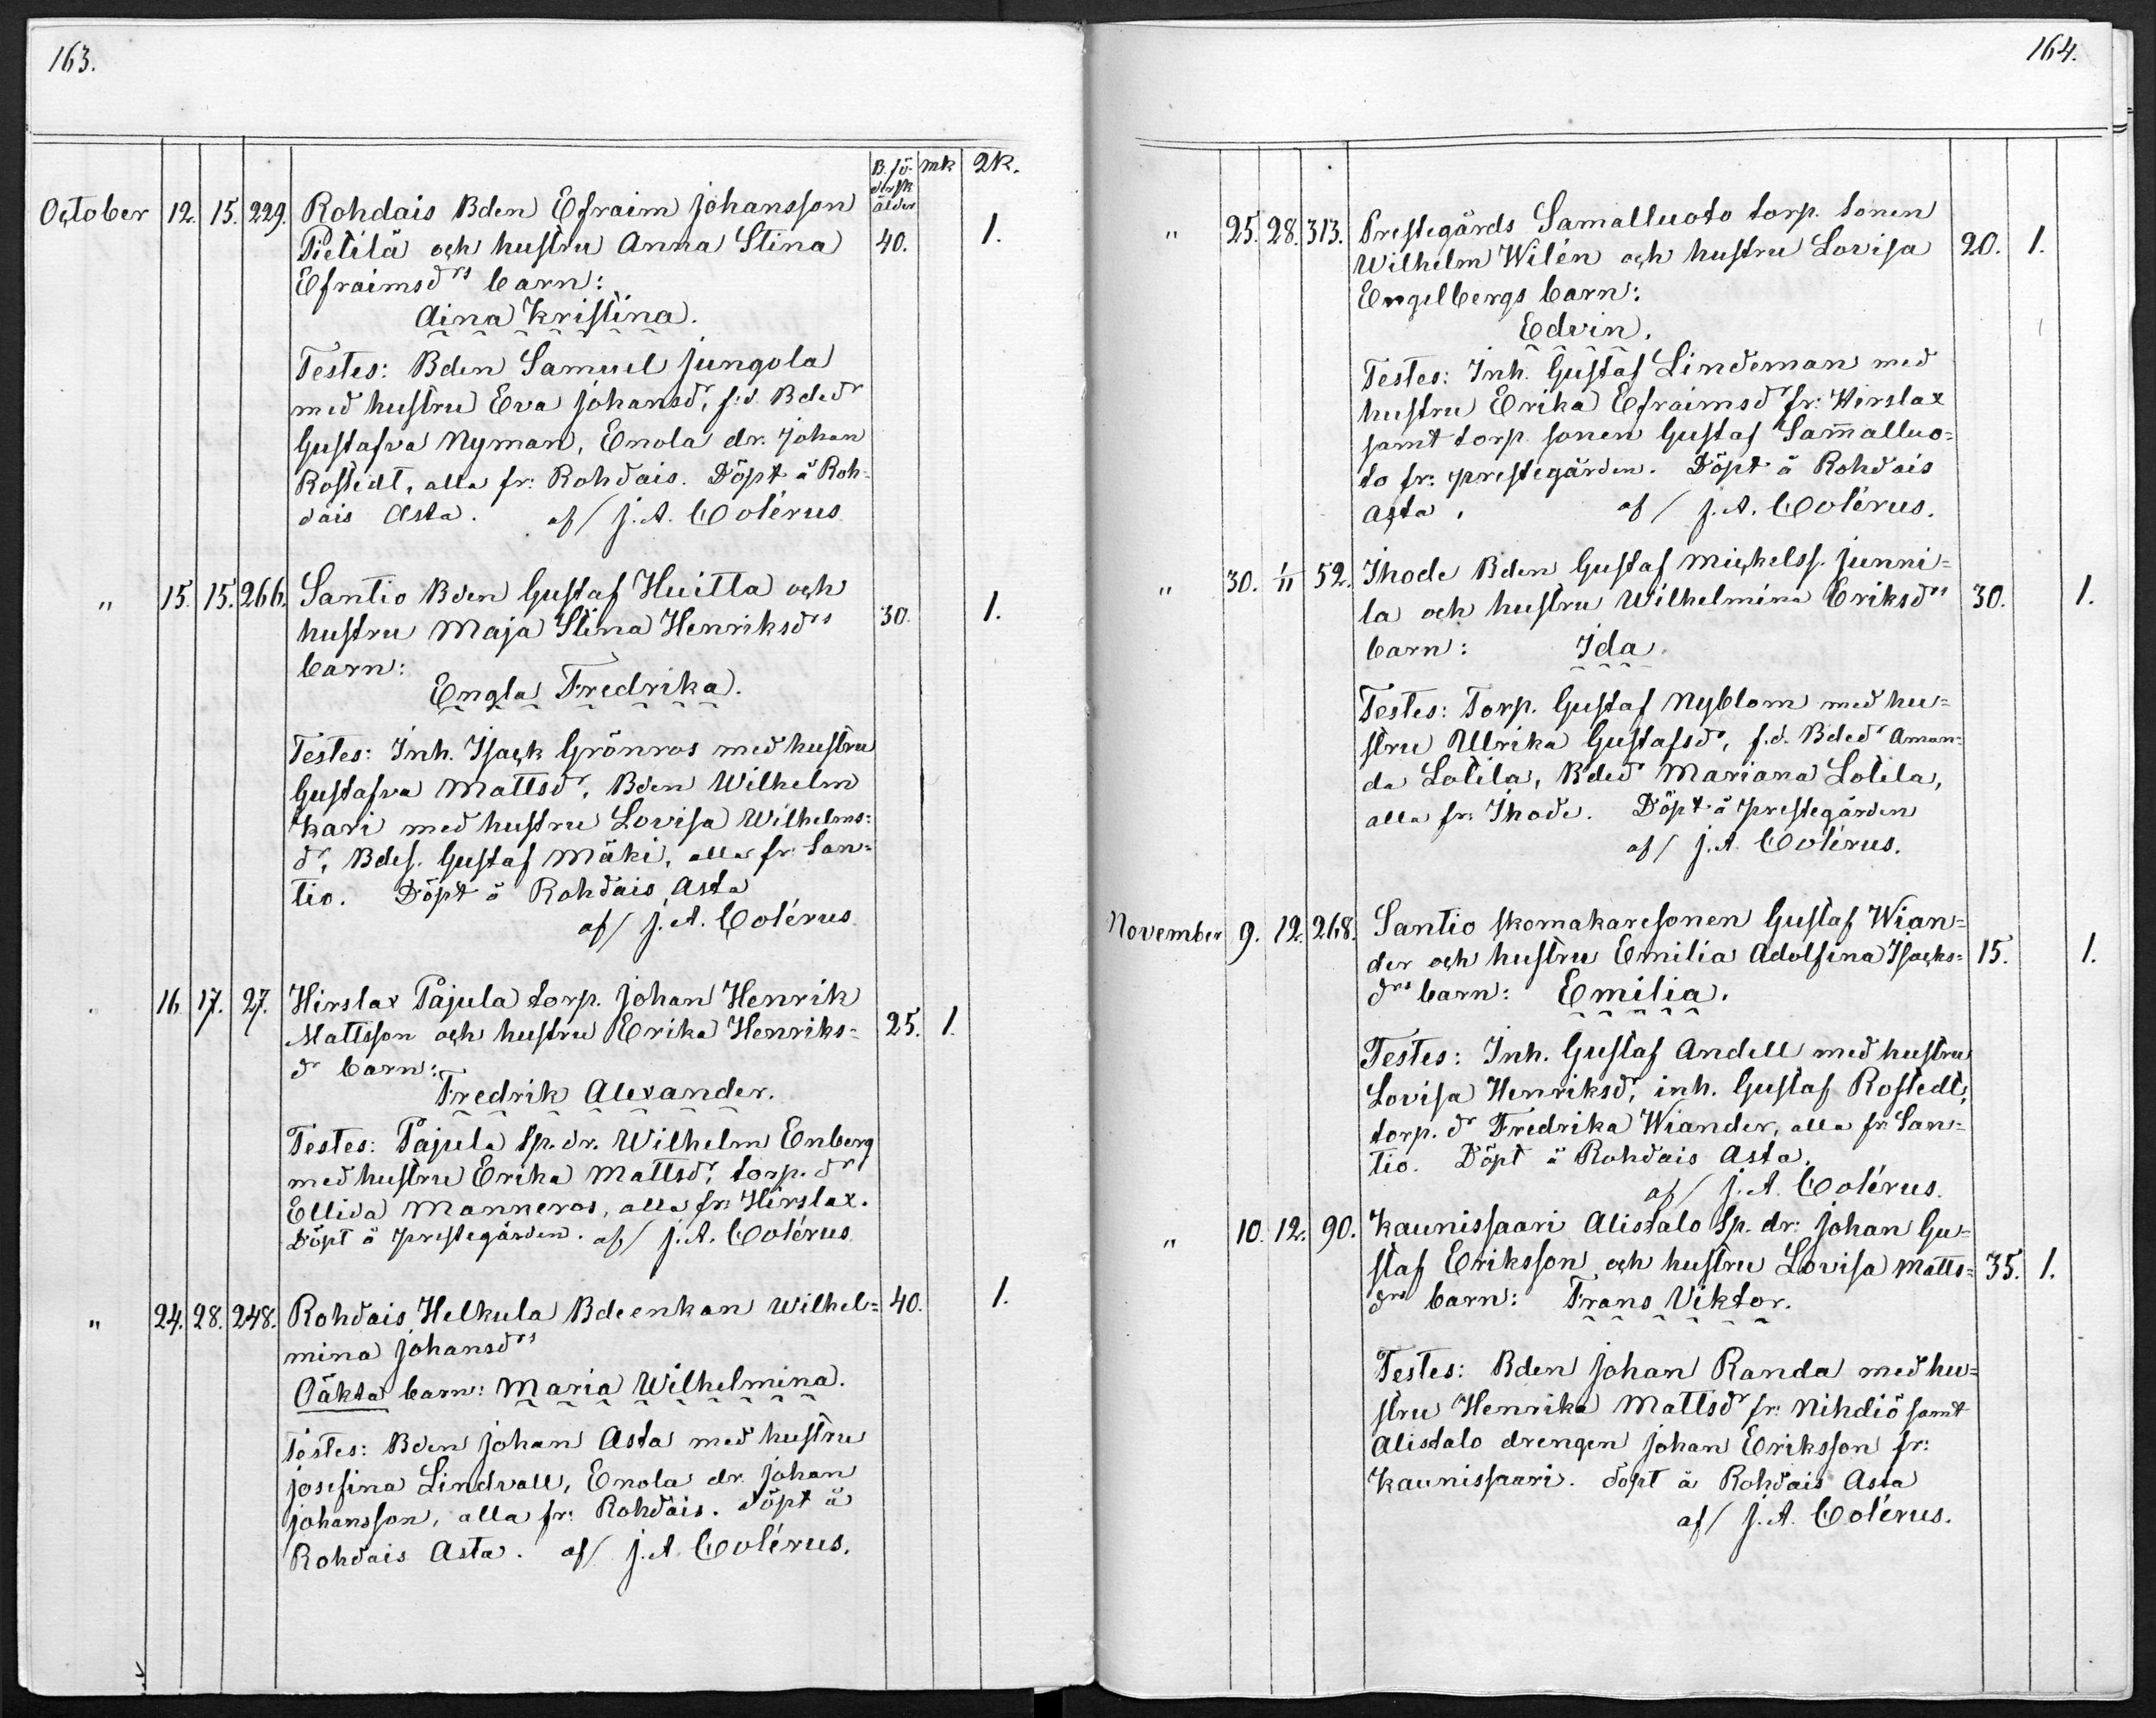 163.
B. fö- mk Qk.
dersk
October 12. 15. 229. Rohdais Bden Efraim Johansson ålder
Pietilä och hustru Anna Stina 40. 1.
Efraimsdrs barn:
Aina Kristina.
Testes: Bden Samuel Jungola
med hustru Eva Johansdr, f.d. Bdedr
Gustafva Nyman, Enola dr. Johan
Rostedt, alla fr: Rohdais. Döpt å Roh-
dais Asta. af/ J. A. Colérus
" 15. 15. 266. Santio Bden Gustaf Huitta och
hustru Maja Stina Henriksdrs 30. 1.
barn:
Engla Fredrika.
Testes: Inh. Isack Grönros med hustru
Gustafva Mattsdr, Bden Wilhelm
Kari med hustru Lovisa Wilhelms=
dr, Bdes. Gustaf Mäki, alla fr: San=
tio. Döpt å Rohdais Asta
af/ J. A. Colérus
" 16. 17. 27. Hirslax Pajula torp. Johan Henrik
Mattsson och hustru Erika Henriks= 25. 1.
dr barn:
Fredrik Alexander.
Testes: Pajula Sp. dr. Wilhelm Enberg
med hustru Erika Mattsdr, torp. dr
Ellida Manneros, alla fr: Hirslax.
Döpt å prestegården. af/ J. A. Colérus
" 24. 28. 248. Rohdais Helkula Bdeenkan Wilhel= 40. 1.
mina Johansdrs
Oäkta barn: Maria Wilhelmina.
Testes: Bden Johan Asta med hustru
Josefina Lindvall, Enola dr. Johan
Johansson, alla fr: Rohdais. Döpt å
Rohdais Asta. af/ J. A. Colérus.
164.
" 25. 28. 313. Prestegårds Samalluoto torp. sonen
Wilhelm Wilén och hustru Lovisa 20. 1.
Engelbergs barn:
Edvin.
Testes: Inh. Gustaf Lindeman med
hustru Erika Efraimsdr fr: Hirslax
samt torp. sonen Gustaf Sam̄alluo=
to fr: prestegården. Döpt å Rohdais
Asta. af/ J. A. Colérus.
" 30. 1/11 52. Ihode Bden Gustaf Michelss. Junni=
la och hustru Wilhelmina Eriksdrs 30. 1.
barn: Ida.
Testes: Torp. Gustaf Nyblom med hu=
stru Ulrika Gustafsdr, f.d. Bdedr Aman=
da Lotila, Bdedr Mariana Lotila,
alla fr: Ihode. Döpt å prestegården
af/ J. A. Colérus.
November 9. 12. 268. Santio skomakaresonen Gustaf Wian=
der och hustru Emilia Adolfina Isacks= 15. 1.
drs barn: Emilia.
Testes: Inh. Gustaf Andell med hustru
Lovisa Henriksdr, inh. Gustaf Rostedt,
torp. dr Fredrika Wiander, alla fr: San=
tio. Döpt å Rohdais Asta.
af/ J. A. Colérus.
" 10. 12. 90. Kaunissaari Alistalo Sp. dr. Johan Gu=
staf Eriksson och hustru Lovisa Matts= 35. 1.
drs barn: Frans Viktor.
Testes: Bden Johan Randa med hu=
stru Henrika Mattsdr fr: Nihdiö samt
Alistalo drengen Johan Eriksson fr:
Kaunissaari. döpt å Rohdais Asta
af/ J. A. Colérus.